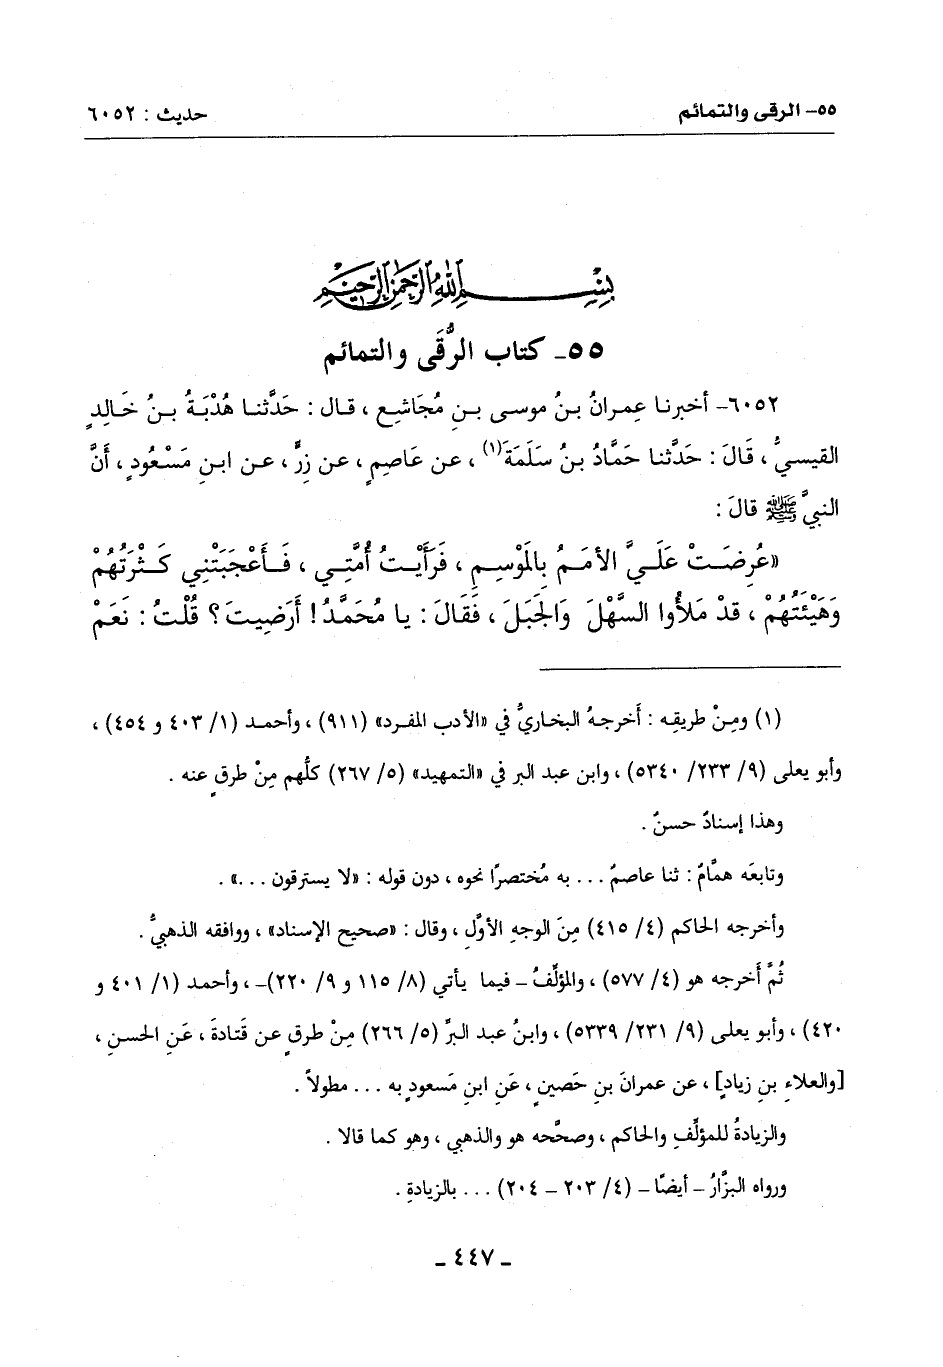 ٥٥- الرقى والتمائم حديث : ٦٠٥٢
بِسْمِ اللهِ الرَّحْمٰنِ الرَّحِيْمِ
٥٥ـ كتاب الرُّقَى والتمائم
٦٠٥٢- أخبرنا عِمرانُ بنُ موسى بنِ مُجَاشِعٍ ، قال : حَدَّثنا هُدْبَةُ بنُ خَالِدٍ
القيسيُّ ، قَالَ : حَدَّثنا حَمَّادُ بنُ سَلَمَةَ(١) ، عن عَاصِمٍ ، عن زِرٍّ ، عن ابنِ مَسْعُودٍ ، أَنَّ
النبيَّ ﷺ قالَ :
«عُرِضَتْ عَلَيَّ الأمَمُ بِالمَوْسِمِ ، فَرَأَيْتُ أُمَّتِي ، فَأَعْجَبَتْنِي كَثْرَتُهُمْ
وَهَيْئَتُهُمْ ، قدْ مَلأُوا السَّهْلَ وَالجَبَلَ ، فَقَالَ : يا مُحَمَّدُ! أَرَضِيتَ؟ قُلْتُ : نَعَمْ
(١) ومِنْ طريقِه : أخرجهُ البخاريُّ في «الأدب المفرد» (٩١١) ، وأحمد (١/ ٤٠٣ و ٤٥٤) ،
وأبو يعلى (٩/ ٢٣٣/ ٥٣٤٠) ، وابن عبد البر في «التمهيد» (٥/ ٢٦٧) كلُّهم مِنْ طرقٍ عنه .
وهذا إسنادٌ حسنٌ .
وتابعَه همَّامٌ : ثنا عاصمٌ ... به مُختصرًا نحوه ، دون قوله : «لا يسترقون ...» .
وأخرجه الحاكم (٤/ ٤١٥) مِنَ الوجهِ الأوَّلِ ، وقال : «صحيح الإسناد» ، ووافقه الذهبيُّ .
ثُمَّ أخرجه هو (٤/ ٥٧٧) ، والمؤلِّفُ ـ فيما يأتي (٨/ ١١٥ و ٩/ ٢٢٠)ـ ، وأحمد (١/ ٤٠١ و
٤٢٠) ، وأبو يعلى (٩/ ٢٣١/ ٥٣٣٩) ، وابنُ عبد البرِّ (٥/ ٢٦٦) مِنْ طرقٍ عن قَتادةَ ، عَنِ الحسنِ ،
[والعلاءِ بنِ زيادٍ] ، عن عمرانَ بنِ حَصينٍ ، عَنِ ابنِ مَسعودٍ به ... مطولاً .
والزيادةُ للمؤلِّفِ والحاكم ، وصحَّحه هو والذهبي ، وهو كما قالا .
ورواه البزَّارُ ـ أيضًا ـ (٤/ ٢٠٣ ـ ٢٠٤) ... بالزيادةِ .
ـ ٤٤٧ ـ